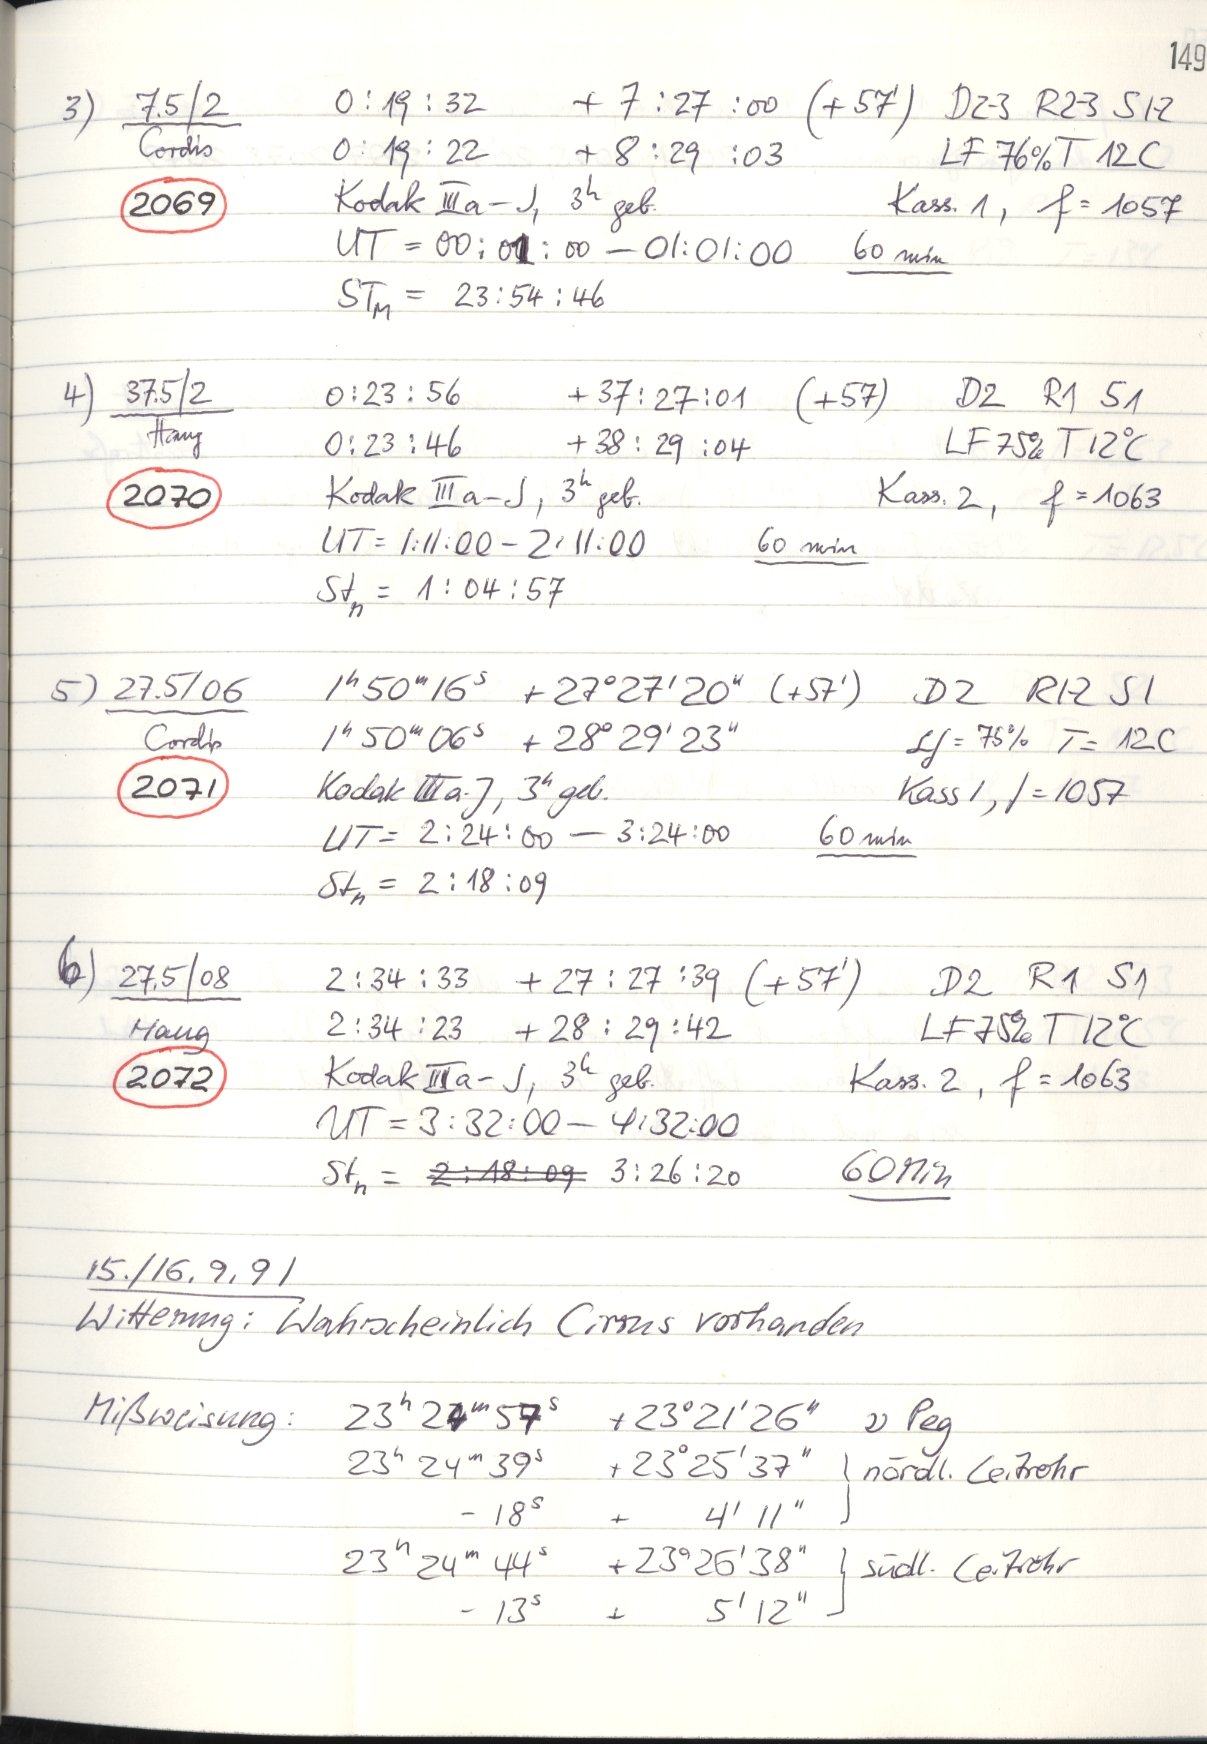 149
3) 7.5/2 0:19:32 + 7:27:00 (+57') D2-3 R2-3 S1-2
Cordis 0:19:22 + 8:29:03 LF 76% T 12C
2069 Kodak IIIa-J, 3h geb. Kass. 1, f = 1057
UT = 00:01:00 — 01:01:00 60 min
STM = 23:54:46
4) 37.5/2 0:23:56 +37:27:01 (+57) D2 R1 S1
Haug 0:23:46 +38:29:04 LF 75% T 12°C
2070 Kodak IIIa-J, 3h geb. Kass. 2, f = 1063
UT = 1:11:00 – 2:11:00 60 min
Stn = 1:04:57
5) 27.5/06 1h 50m 16s + 27° 27' 20" (+57') D2 R1-2 S1
Cordis 1h 50m 06s + 28° 29' 23" Lf = 75% T = 12C
2071 Kodak IIIa-J, 3h geb. Kass 1, f = 1057
UT = 2:24:00 — 3:24:00 60 min
Stn = 2:18:09
6) 27.5/08 2:34:33 + 27:27:39 (+57') D2 R1 S1
Haug 2:34:23 + 28:29:42 LF 75% T 12°C
2072 Kodak IIIa-J, 3h geb. Kass. 2, f = 1063
UT = 3:32:00 — 4:32:00
Stn = 2:18:09 3:26:20 60 min
15./16.9.91
Witterung: Wahrscheinlich Cirrus vorhanden
Mißweisung: 23h 24m 57s +23° 21' 26" υ Peg
23h 24m 39s +23° 25' 37" } nördl. Leitrohr
- 18s + 4' 11"
23h 24m 44s +23° 26' 38" } südl. Leitrohr
- 13s + 5' 12"